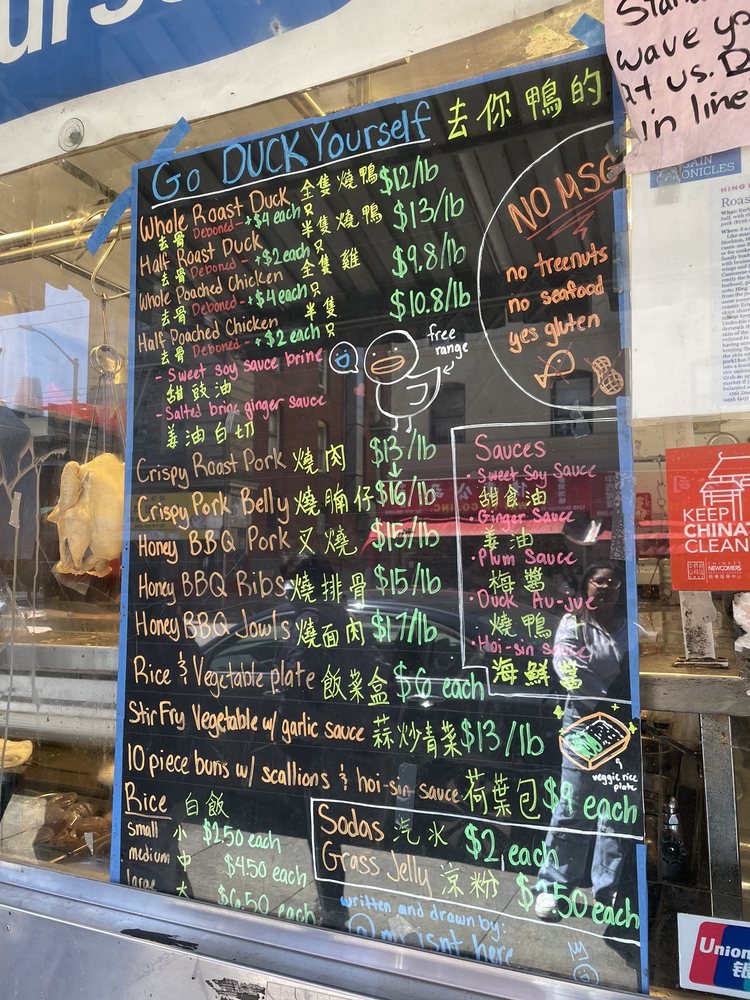 Go DUCK Yourself 去你鴨的
Whole Roast Duck 全隻燒鴨 $12/lb
去骨 Deboned - +$4 each 只
Half Roast Duck 半隻燒鴨 $13/lb
去骨 Deboned - +$2 each 只
Whole Poached Chicken 全隻雞 $9.8/lb
去骨 Deboned - +$4 each 只
Half Poached Chicken 半隻 $10.8/lb
去骨 Deboned - +$2 each 只
- Sweet soy sauce brine
甜豉油
- Salted brine ginger sauce
姜油白切
free range
NO MSG
no treenuts
no seafood
yes gluten
Crispy Roast Pork 燒肉 $13/lb
Crispy Pork Belly 燒腩仔 $16/lb
Honey BBQ Pork 叉燒 $15/lb
Honey BBQ Ribs 燒排骨 $15/lb
Honey BBQ Jowls 燒面肉 $17/lb
Rice & Vegetable plate 飯菜盒 $6 each
Stir Fry Vegetable w/ garlic sauce 蒜炒青菜 $13/lb
10 piece buns w/ scallions & hoi-sin sauce 荷葉包 $9 each
Sauces
· Sweet Soy Sauce
甜食油
· Ginger Sauce
姜油
· Plum Sauce
梅醬
· Duck Au-jue
燒鴨汁
· Hoi-sin sauce
海鮮醬
veggie rice
plate
Rice 白飯
small 小 $2.50 each
medium 中 $4.50 each
large 大 $6.50 each
Sodas 汽水 $2 each
Grass Jelly 涼粉 $2.50 each
written and drawn by:
@mr.isnt.here
wave
at us.
in line
KEEP
CHINA
CLEAN
CHINESE
NEWCOMERS
Union
银